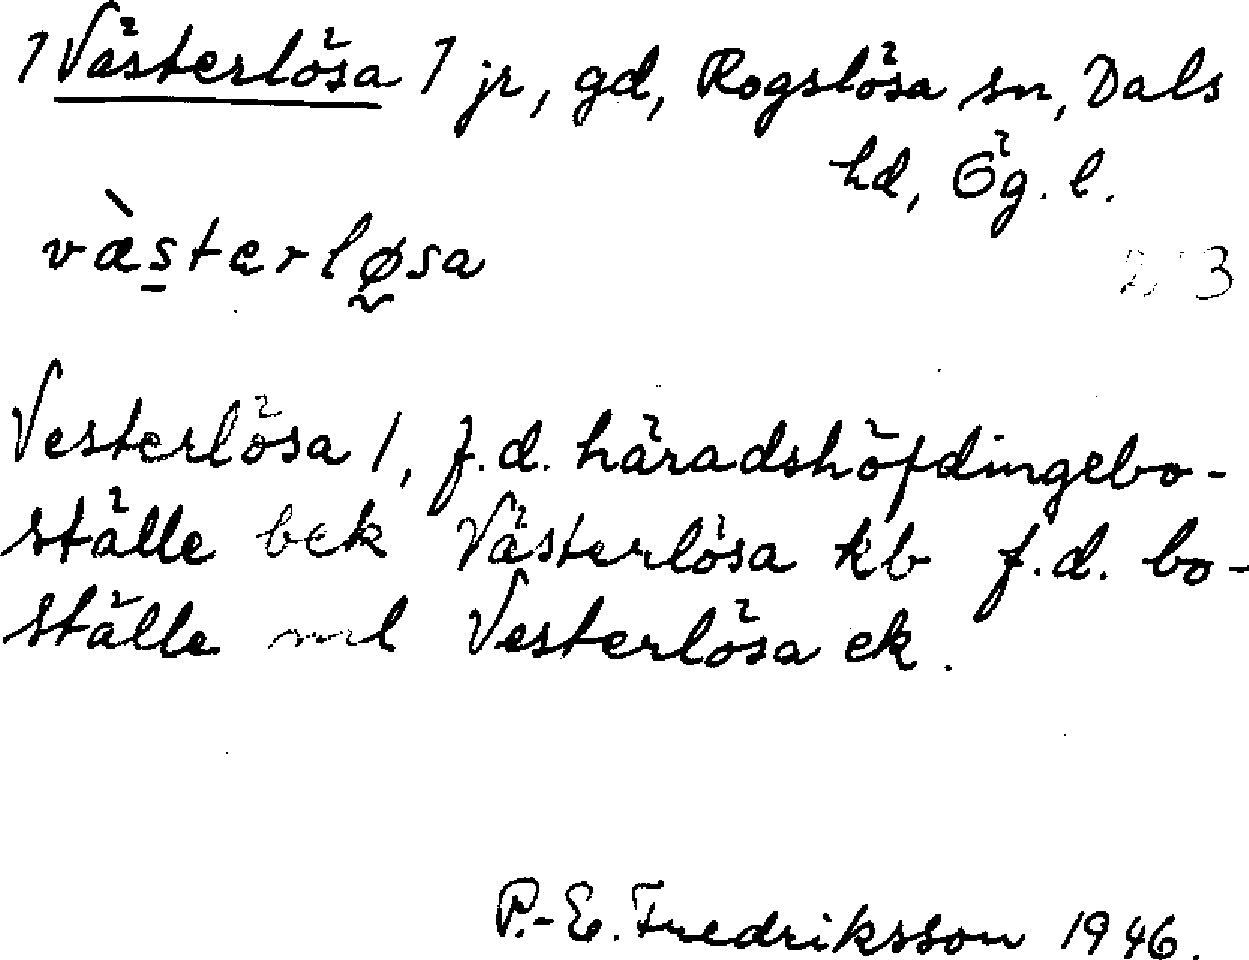 1 Västerlösa 1 jr, gd, Rogslösa sn, Dals
hd, Ög. l.
væ̀sterløsa
Vesterlösa 1, f.d. häradshöfdingebo-
ställe bek Västerlösa kb f.d. bo-
ställe ml Vesterlösa ek.
P.-E. Fredriksson 1946.